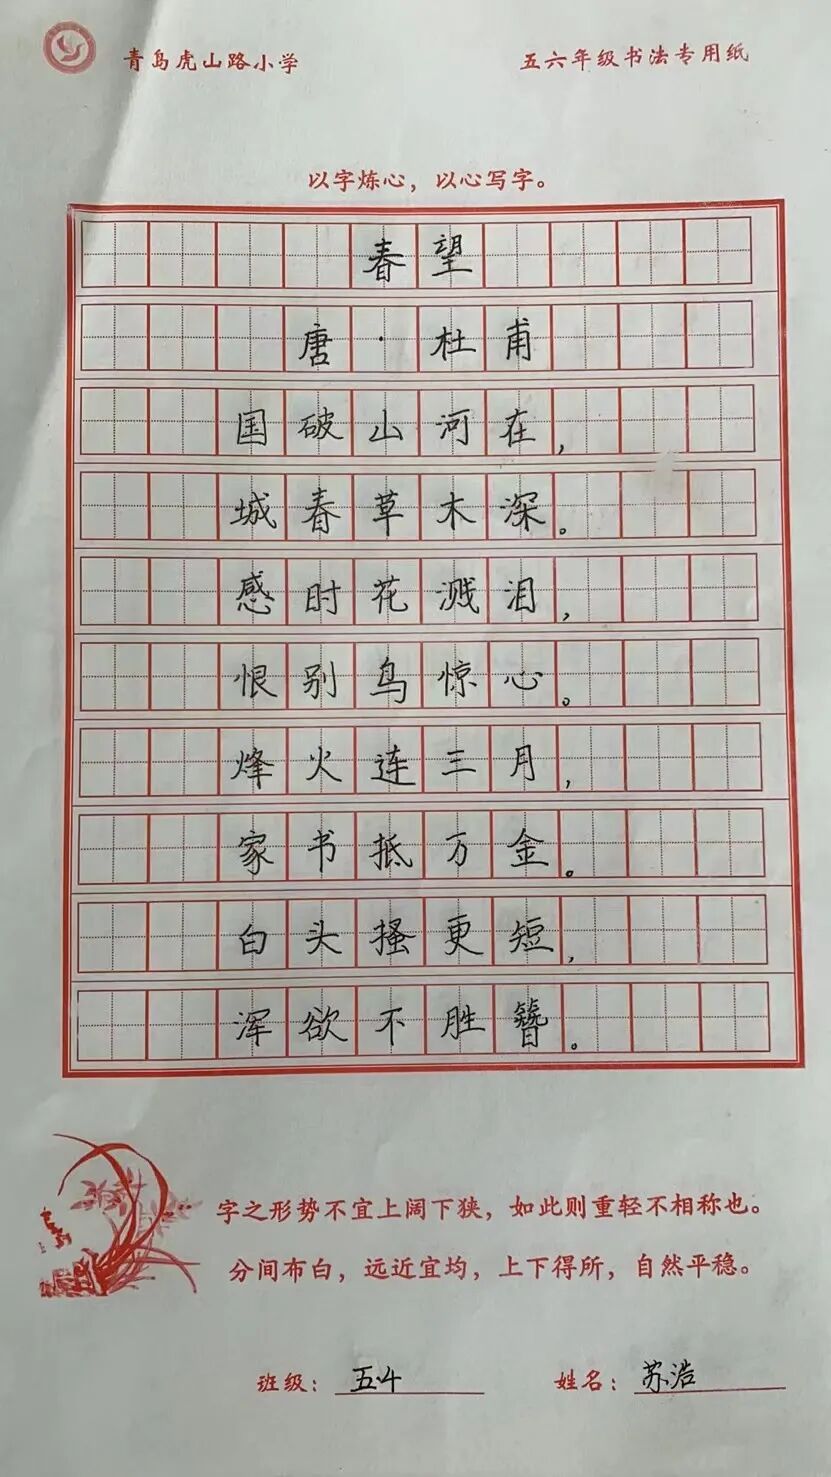 青岛虎山路小学
五六年级书法专用纸
以字炼心，以心写字。
春望
唐·杜甫
国破山河在，
城春草木深。
感时花溅泪，
恨别鸟惊心。
烽火连三月，
家书抵万金。
白头搔更短，
浑欲不胜簪。
字之形势不宜上阔下狭，如此则重轻不相称也。
分间布白，远近宜均，上下得所，自然平稳。
班级：五4
姓名：苏浩